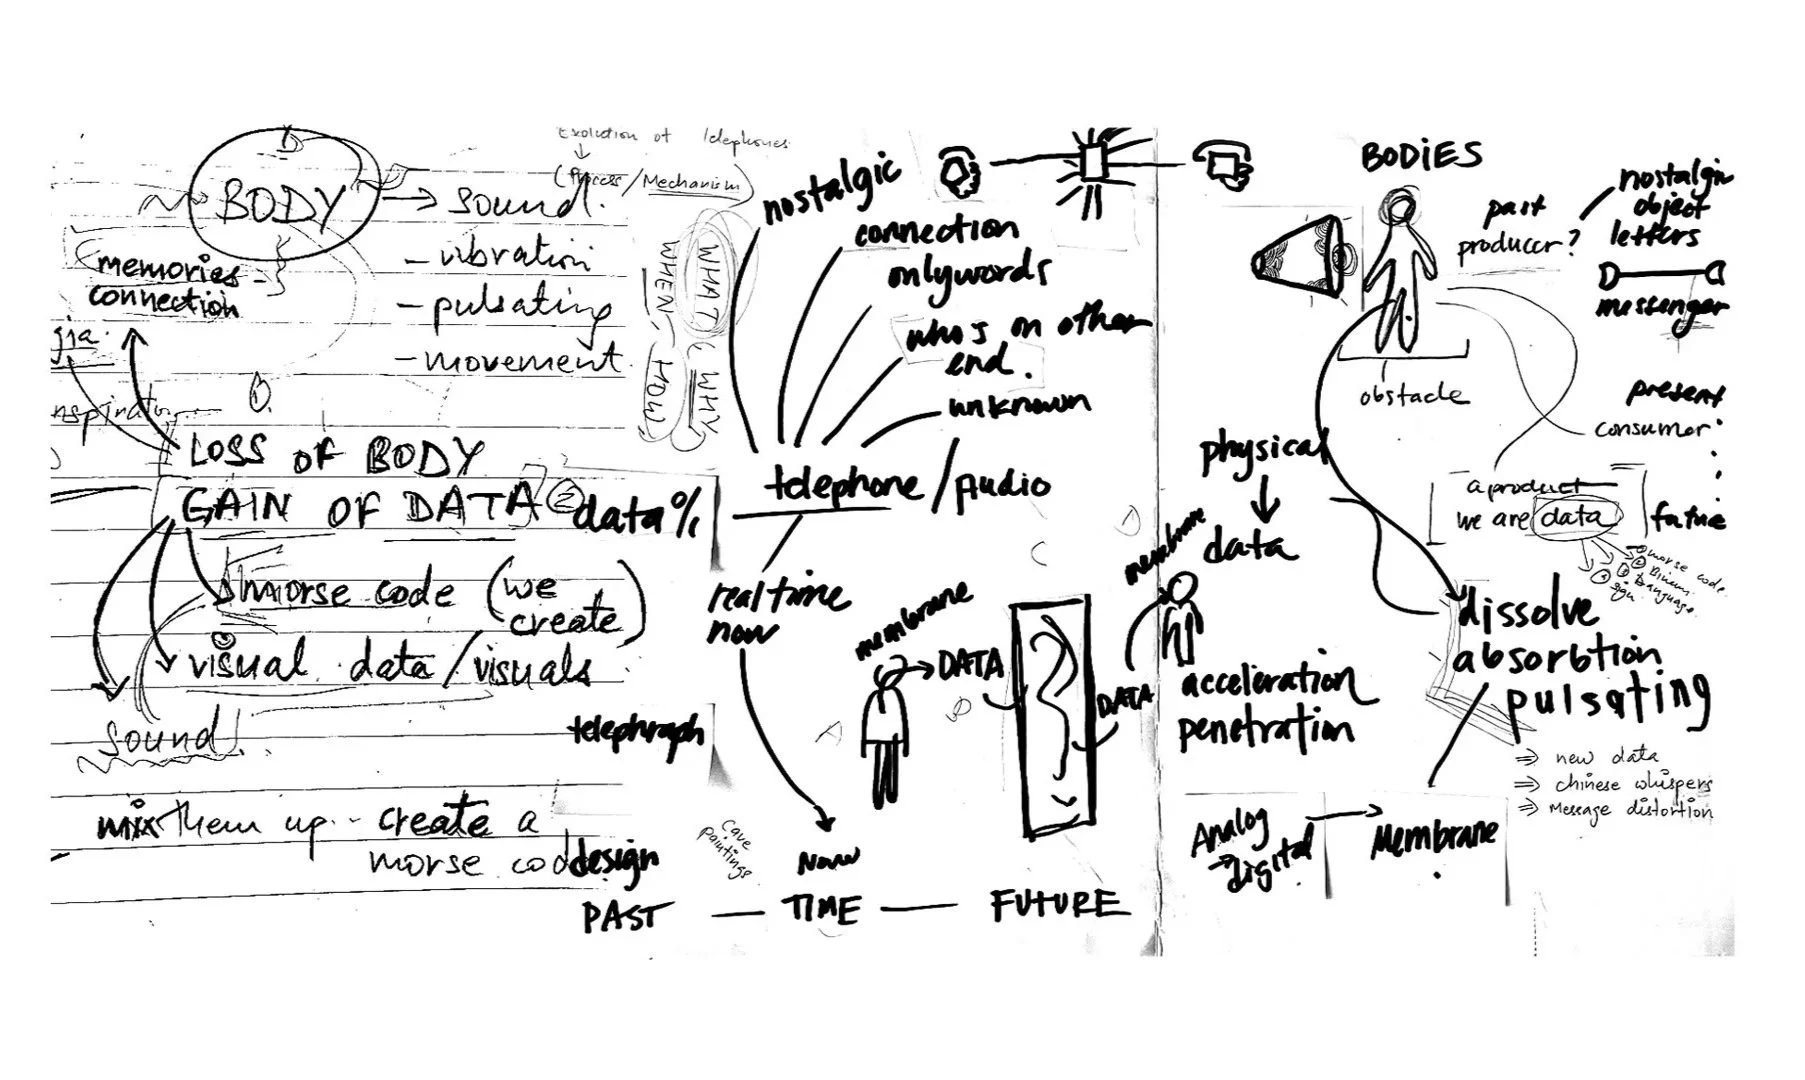 BODY
→ sound.
– vibration
– pulsating
– movement
memories
connection
gia.
LOSS OF BODY
GAIN OF DATA ②
data%
morse code (we
create)
visual data/visuals
sound!
telephraph
mix them up.. create a
morse cod
design
Evolution of telephones
(Process/Mechanism)
WHEN
WHAT
WHY
HOW
nostalgic
connection
only words
who's on other
end.
unknown
telephone/Audio
real time
now
membrane
→ DATA
DATA
membrane
cave
paintings
Now
PAST — TIME — FUTURE
BODIES
past
producer?
nostalgic
object
letters
messenger
obstacle
present
consumer
physical
↓
data
a product
we are data
future
morse code
language
sign
dissolve
absorbtion
pulsating
acceleration
penetration
⇒ new data
⇒ chinese whispers
⇒ Message distortion
Analog
→ digital
Membrane